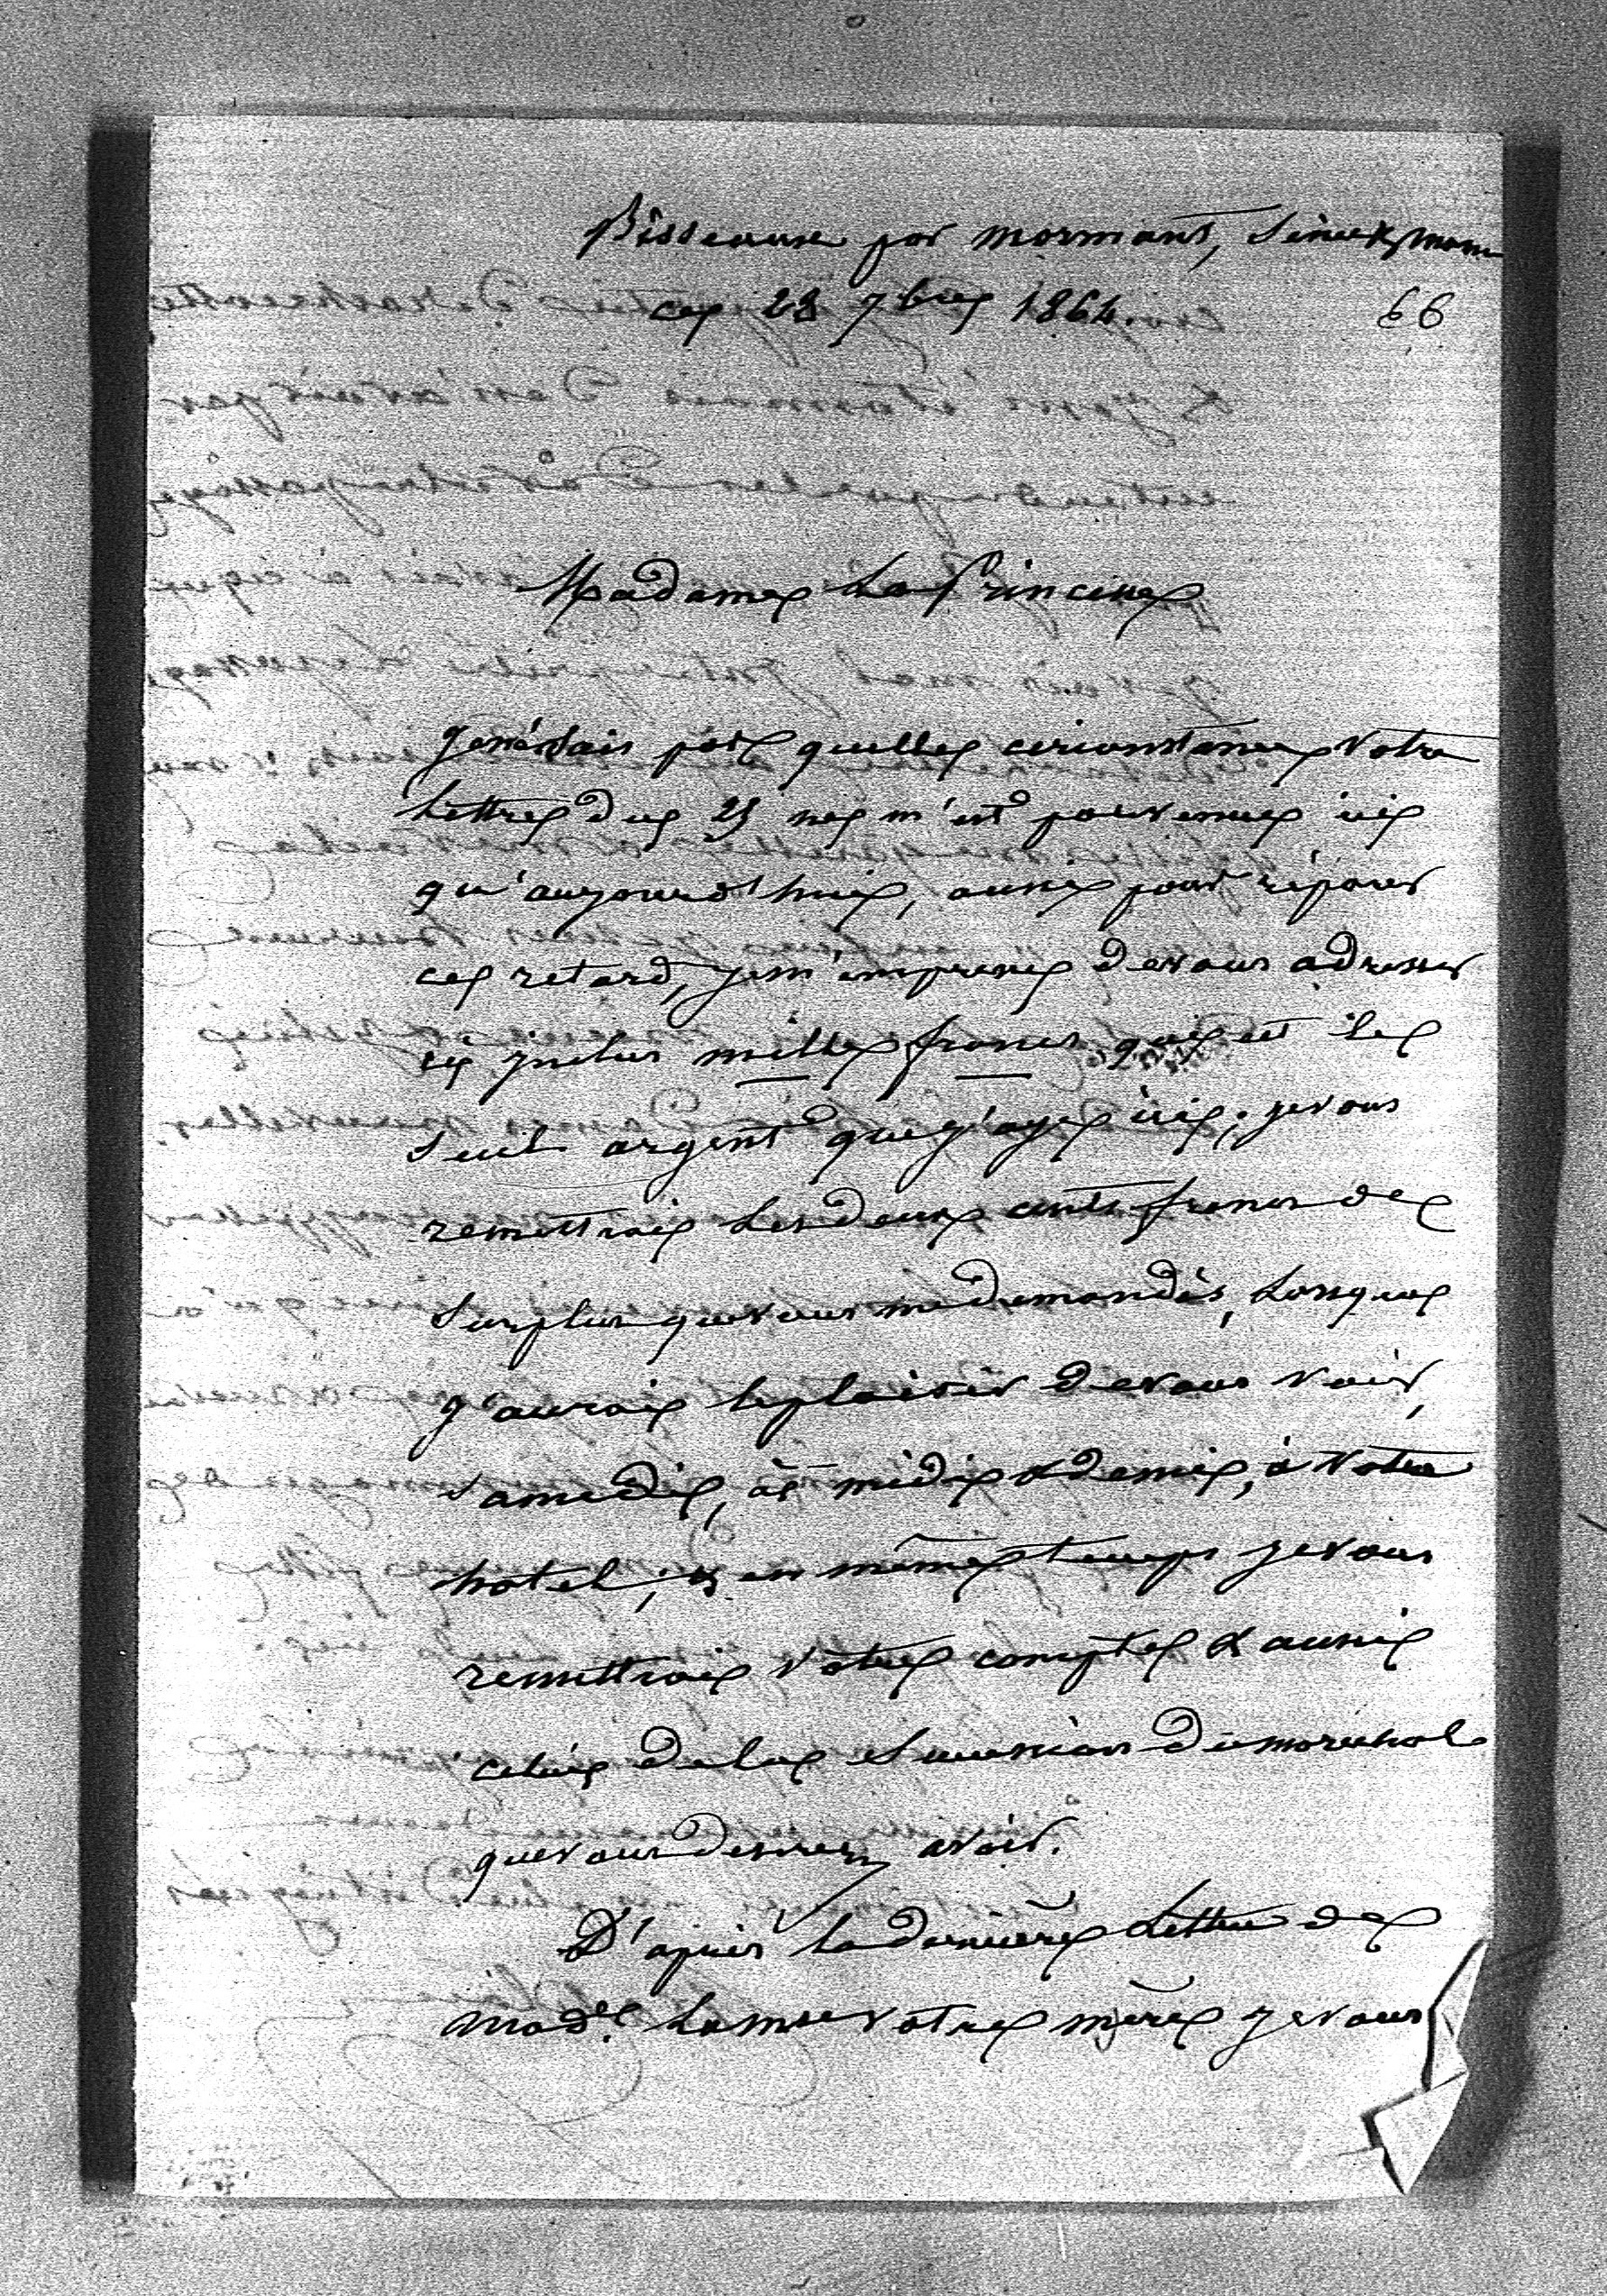 Bisseaux par Mormant, Seine & Marne
ce 28 7bre 1864.
68
Madame La Princesse
Je ne sais par quelle circonstance Votre
Lettre du 25 ne m'est parvenue ici
qu'aujourd'hui, aussi pour réparer
ce retard, je m'empresse de vous adresser
ci inclus mille francs qui est le
seul argent que j'aye ici; je vous
remettrai les deux cents francs de
surplus que vous me demandès, Lorsque
j'aurai le plaisir de vous voir,
samedi, à midi & demie, à Votre
hotel; & en même temps je vous
remettrai Votre compte & aussi
celui de la Succession du marechal
que vous desirez avoir.
D'après la dernière Lettre de
Made. Lamse votre mère je vous